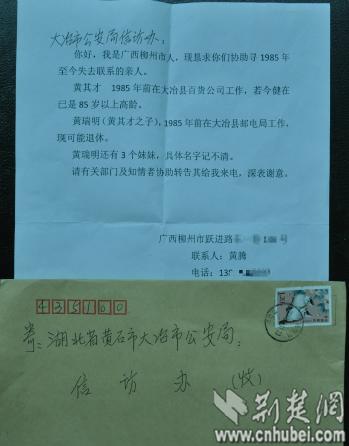 大冶市公安局信访办：
你好，我是广西柳州市人，现恳求你们协助寻1985年
至今失去联系的亲人。
黄其才 1985年前在大冶县百货公司工作，若今健在
已是85岁以上高龄。
黄瑞明（黄其才之子），1985年前在大冶县邮电局工作，
既可能退休。
黄瑞明还有3个妹妹，具体名字记不清。
请有关部门及知情者协助转告其给我来电，深表谢意。
广西柳州市跃进路 号
联系人：黄腾
电话：13
435100
寄：湖北省黄石市大冶市公安局：
信访办（收）
荆楚网
www.cnhubei.com